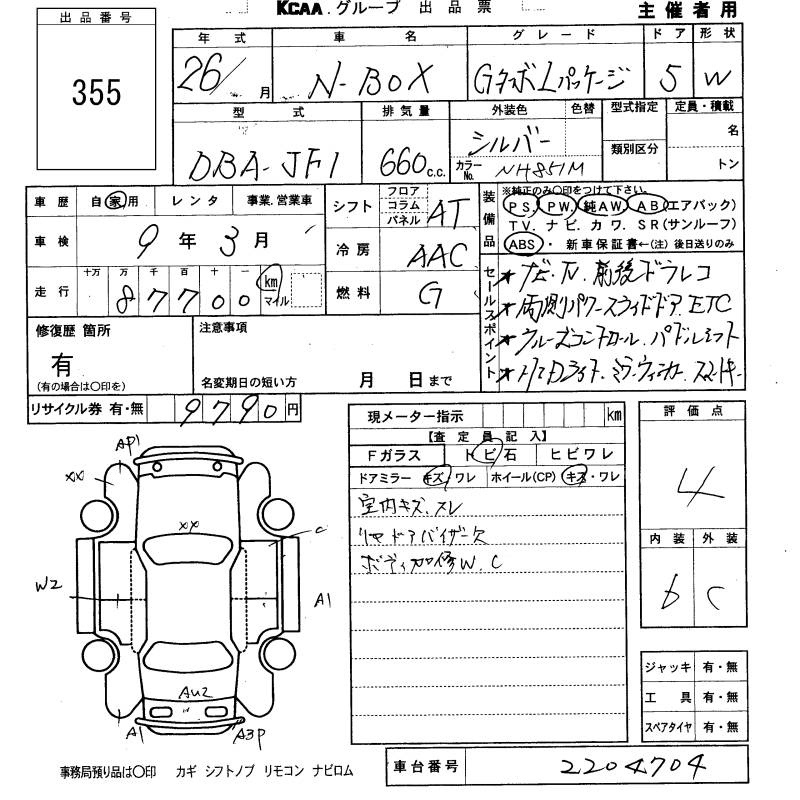 KCAA.グループ 出品票
主催者用
出品番号
355
年式 車名 グレード ドア 形状
26/月 N-BOX GターボLパッケージ 5 W
型式 排気量 外装色 色替 型式指定 定員・積載
DBA-JF1 660c.c. シルバー 類別区分 名
カラーNo. NH851M トン
車歴 自家用 レンタ 事業.営業車
車検 9年3月
走行 十万 万 千 百 十 一 km マイル
87700
シフト フロア コラム パネル AT
冷房 AAC
燃料 G
装備品
※純正のみ〇印をつけて下さい。
PS. PW. 純AW. AB(エアバック)
TV. ナビ. カワ. SR(サンルーフ)
ABS ・ 新車保証書←(注) 後日送りのみ
セールスポイント
★ナビ.TV.前後ドラレコ
★両側パワースライドドア.ETC
★クルーズコントロール.パドルシフト
★HIDライト.ミラーウィンカー.スマートキー
修復歴 箇所
有
(有の場合は〇印を)
注意事項
名変期日の短い方 月 日まで
リサイクル券 有・無 9790円
現メーター指示 km
【査定員記入】
Fガラス トビ石 ヒビワレ
ドアミラー キズ.ワレ ホイール(CP) キズ・ワレ
室内キズ.スレ
リヤドアバイザー欠
ボディ加修W.C
評価点
4
内装 外装
b C
ジャッキ 有・無
工具 有・無
スペアタイヤ 有・無
AP1
XX
XX
C
W2
A1
AU2
A1
A3P
事務局預り品は〇印 カギ シフトノブ リモコン ナビロム
車台番号 2204704